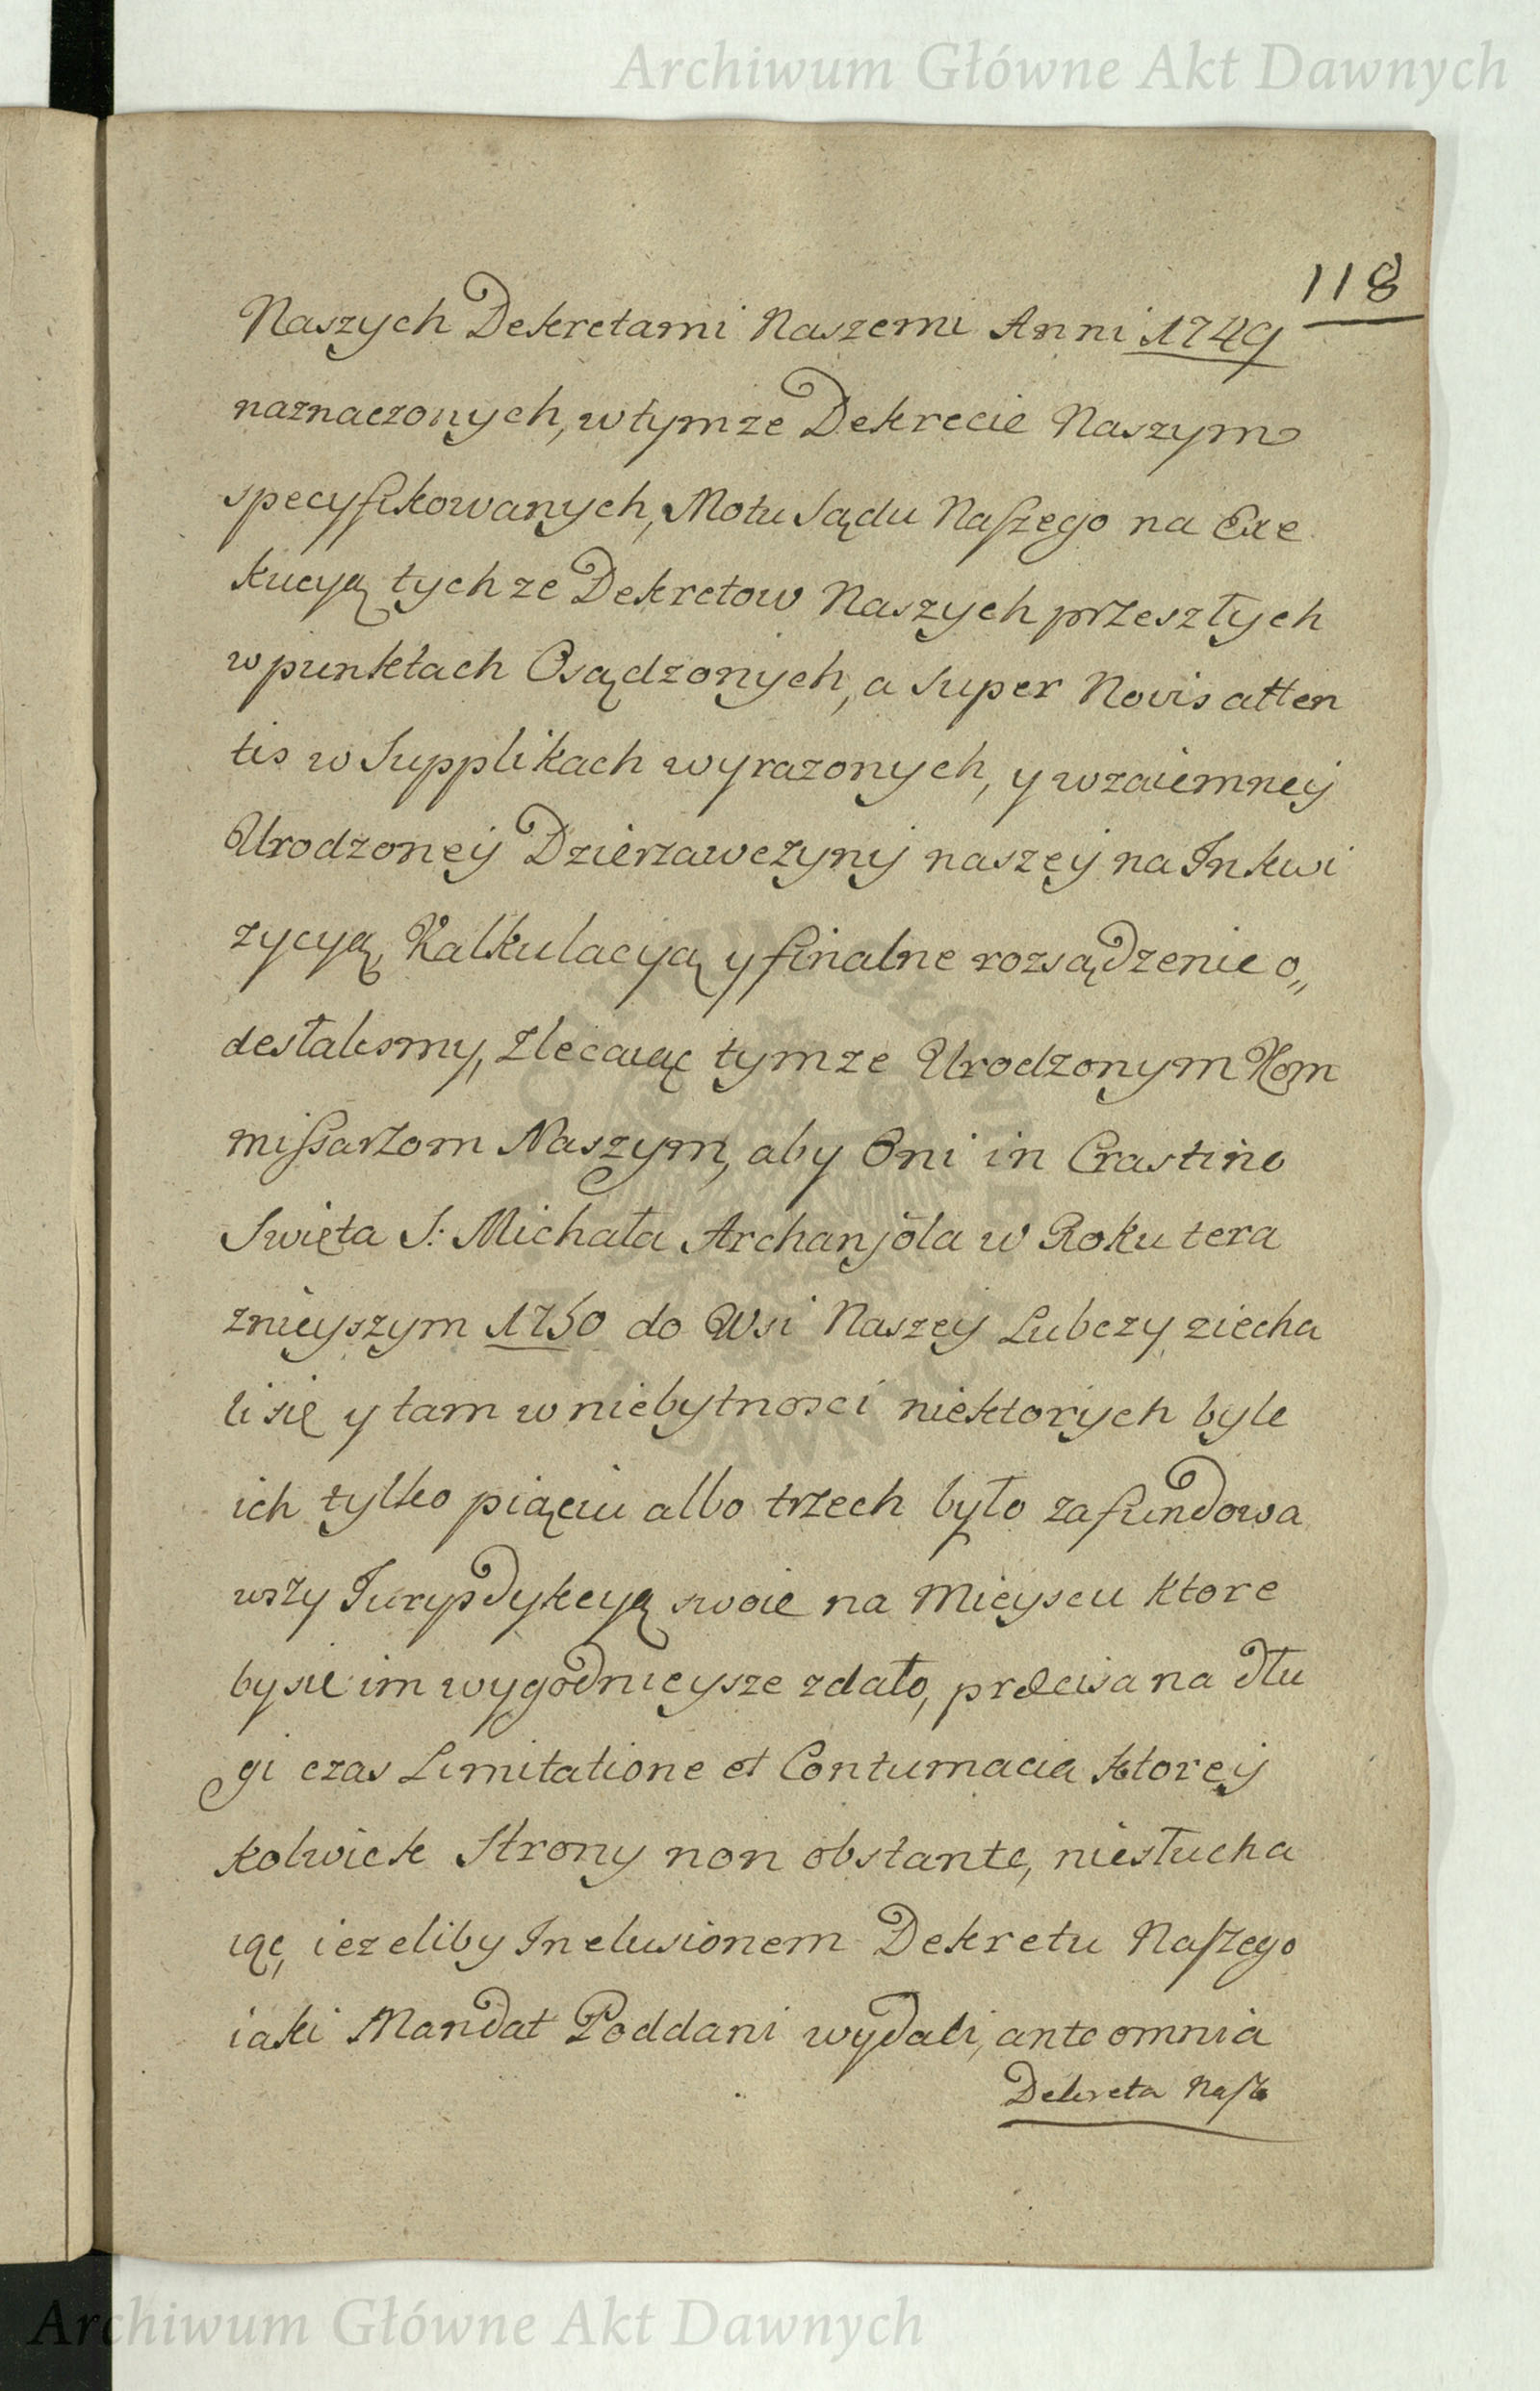 Archiwum Główne Akt Dawnych
118
Naszych Dekretami Naszemi Anni 1749
naznaczonych, w tymze Dekrecie Naszym
specyfikowanych, Motu Sądu Naszego na Exe
kucyą tychze Dekretow Naszych przeszłych
w punktach Osądzonych, a super Novis atten
tis w Supplikach wyrazonych, y wzaiemney
Urodzoney Dzierzawczyny naszey na Inkwi
zycyą, Kalkulacyą y finalne rozsądzenie o„
desłalismy, Zlecaiąc tymze Urodzonym Kom
missarzom Naszym, aby Oni in Crastino
Swięta S: Michała Archanjóła w Roku tera
znieyszym 1750 do Wsi Naszey Lubczy ziecha
li się y tam w niebytnosci niektorych byle
ich tylko piąciu albo trzech było zafundowa
wszy Jurysdykcyą swoie na Mieyscu ktore
by sie im wygodnieysze zdało, præcisa na dłu
gi czas Limitatione et Contumacia ktorey
kolwiek Strony non obstante, niesłucha
iąc, iezeliby In elusionem Dekretu Naszego
iaki Mandat Poddani wydali, ante omnia
Dekreta Nasze
Archiwum Główne Akt Dawnych